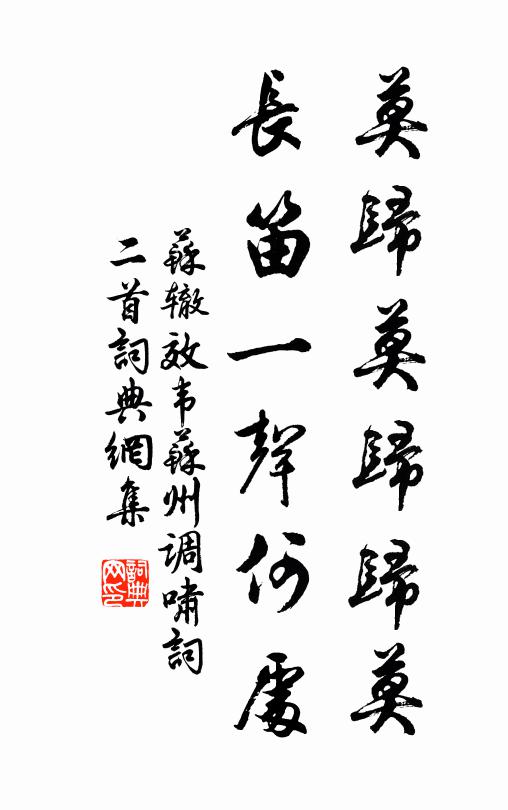 莫歸莫歸歸莫
長笛一聲何處
蘇辙效韦蘇州调嘯詞
二首詞典網集
詞典
网印